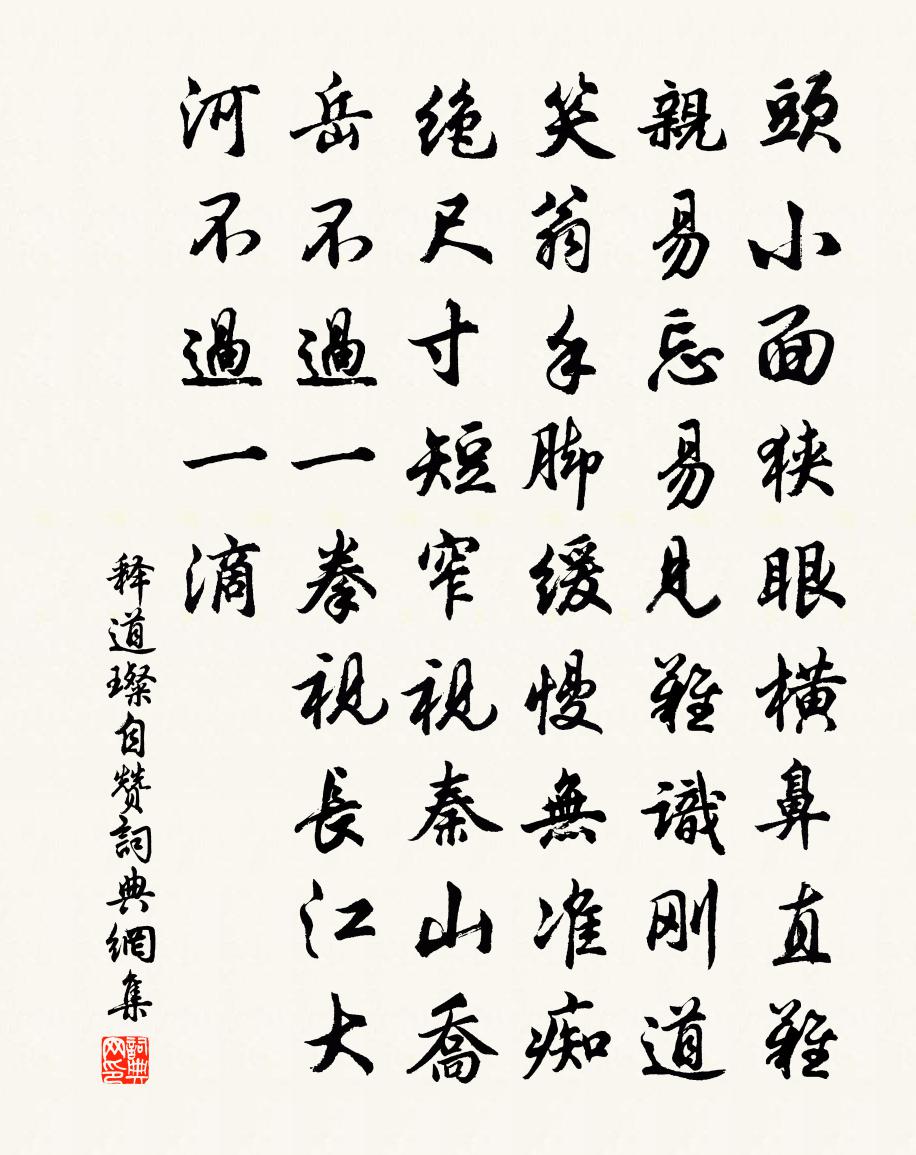 頭小面狹眼橫鼻直難
親易忘易見難識刚道
笑翁手脚緩慢無准痴
絶尺寸短窄視秦山喬
岳不過一拳視長江大
河不過一滴
释道璨自赞詞典網集
詞典网印